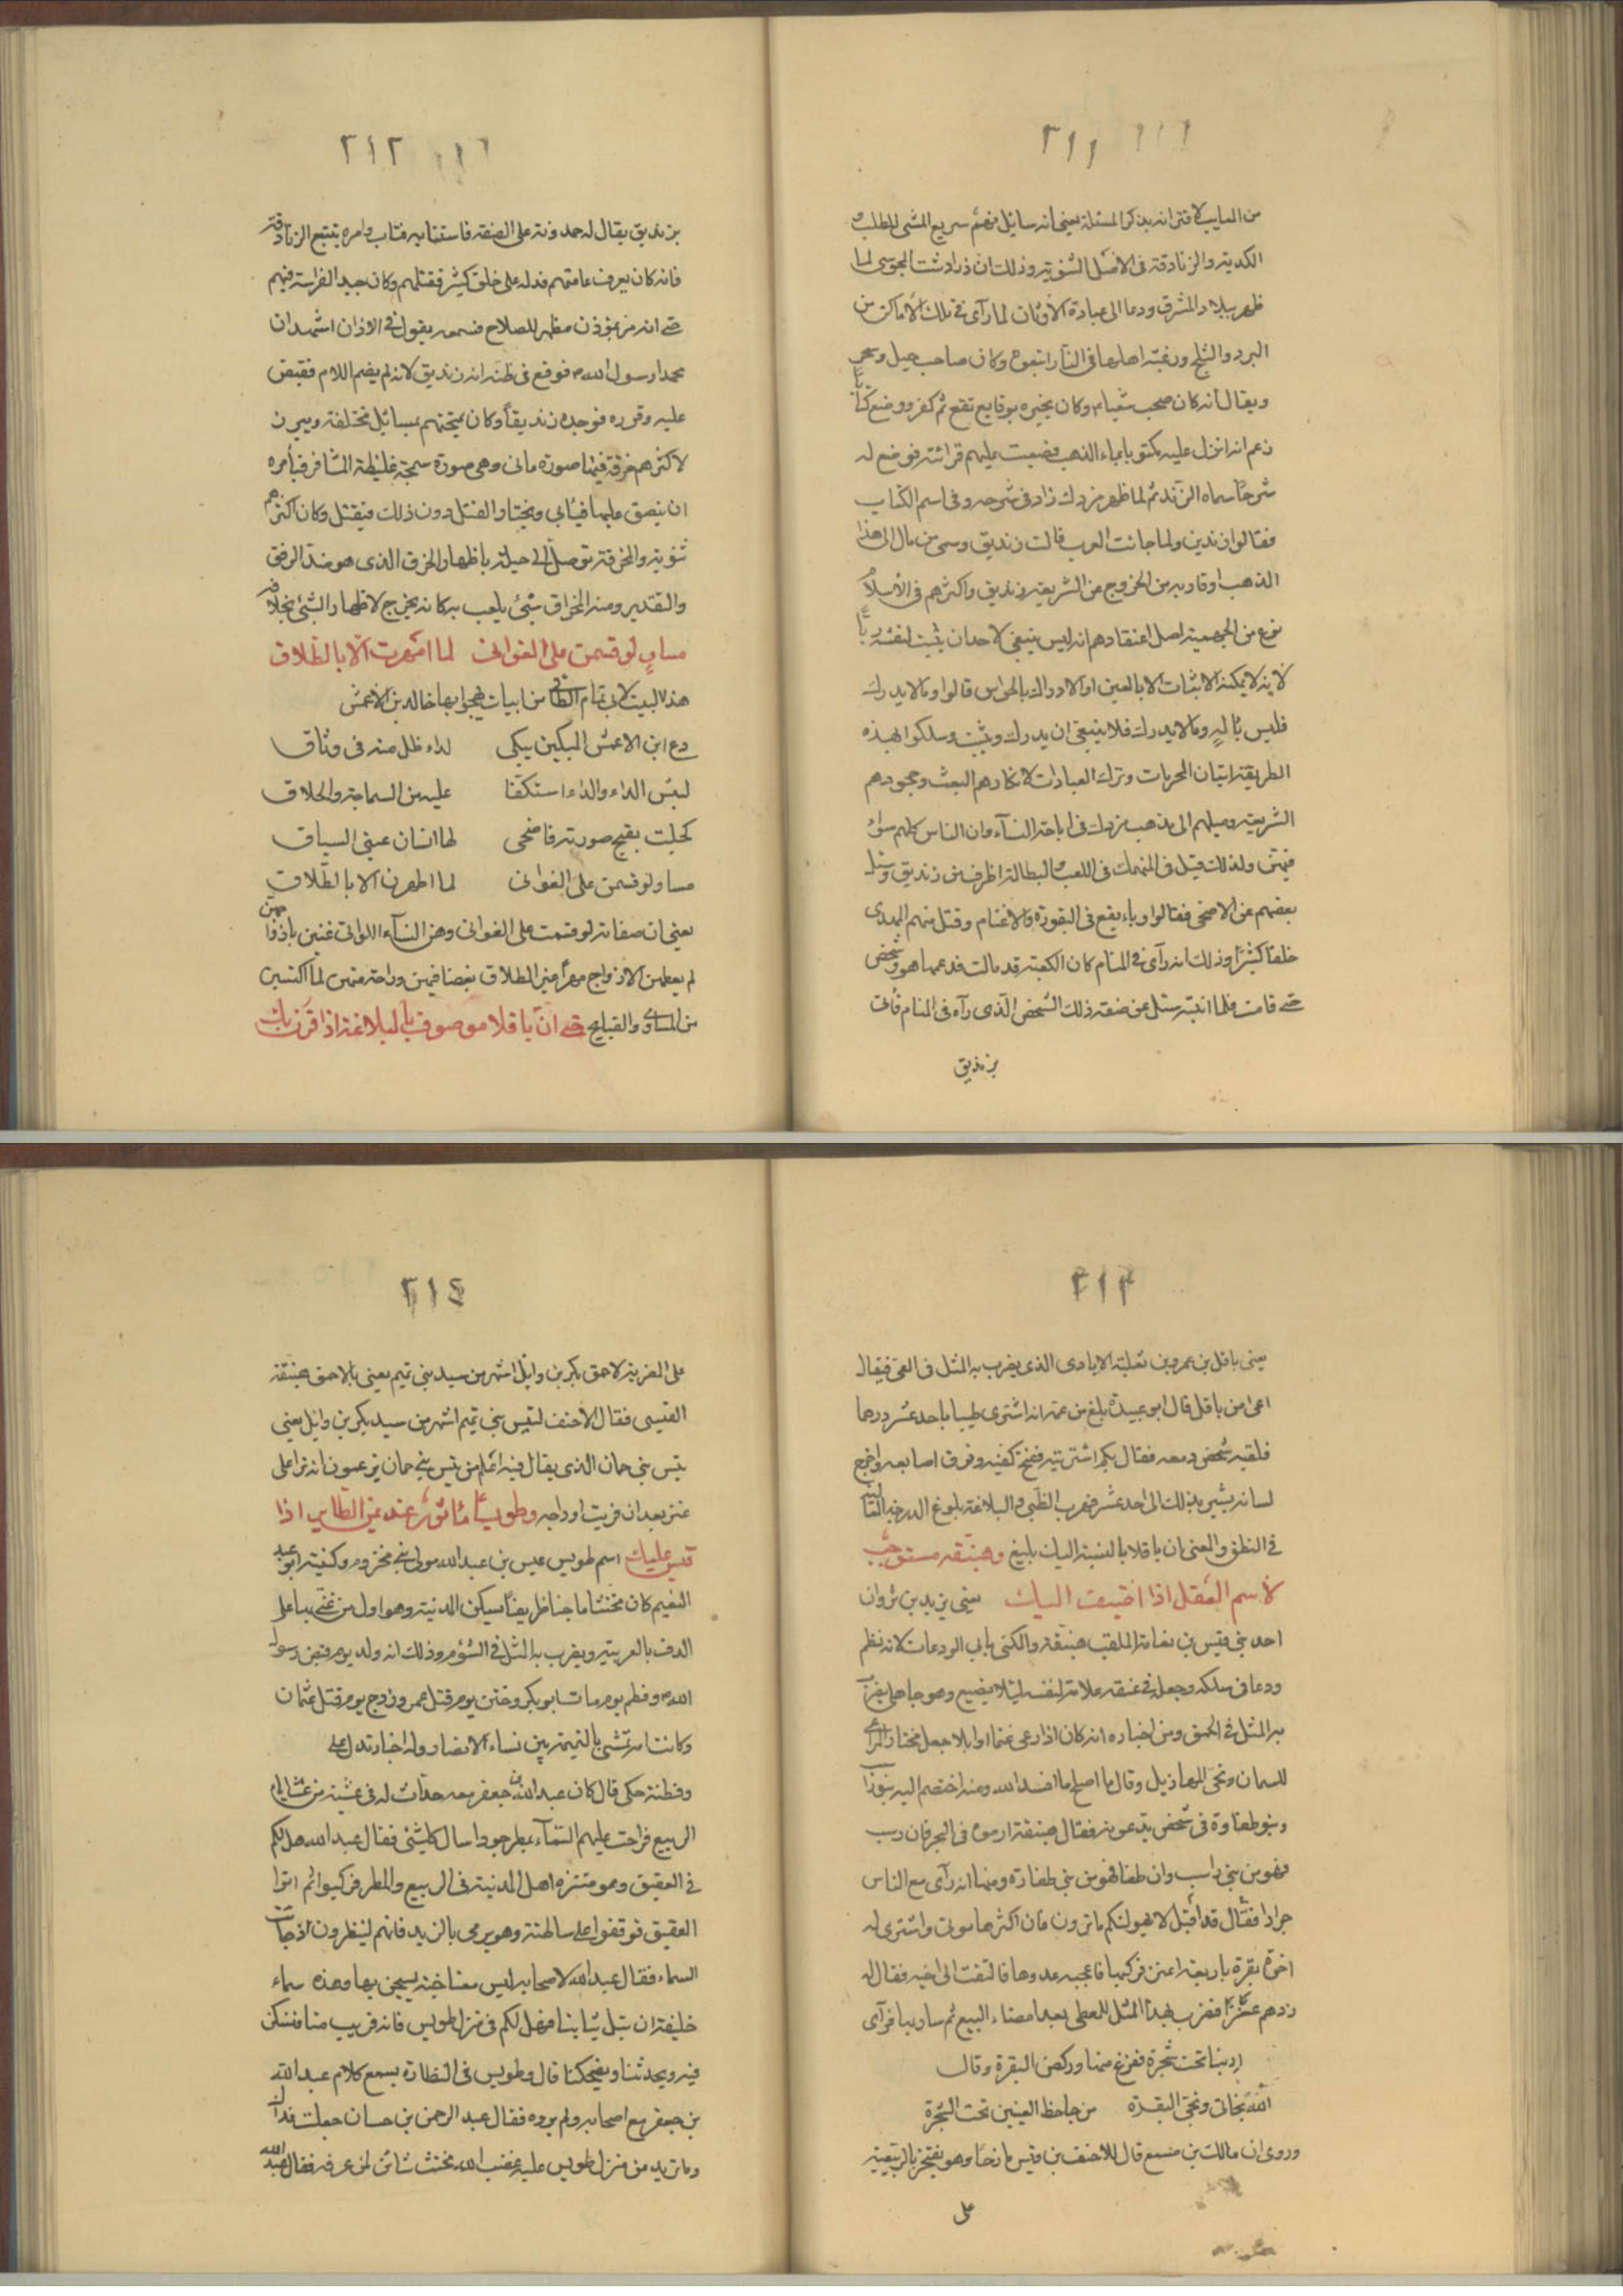 ٣١١
من المعايب لاقترانه بذكر المسئلة يعنى انه سائل فهم سريع المشى للطلب و
الكدية والزنادقة فى الاصل الثنوية وذلك ان زرادشت المجوسى لما
ظهر ببلاد المشرق ودعا الى عبادة الاوثان لما رآى فى تلك الاماكن من
البرد والثلج ورغبة اهلها فى النار اتبعوه وكان صاحب حيل وسحر
ويقال انه كان صحب شعياء وكان يخبره بوقايع تقع ثم كفر ووضع كتابًا
زعم انه انزل عليه مكتوبا بماء الذهب فصعبت عليهم قرائته فوضع له
شرحًا سماه الزند ثم لما ظهر مزدك زاد فى شرحه وفى اسم الكتاب
فقالوا زندين ولما جائت العرب قالت زنديق وسمى من مال الى هذا
المذهب او قاربه من الخروج عن الشريعة زنديق واكثرهم فى الاسلام
نوع من الجهمية اصل اعتقادهم انه ليس ينبغى لاحد ان يثبت لنفسه ربًا
لانه لا يمكنه الاثبات الا بالعين او الادراك بالحواس قالوا وما لا يدرك
فليس باله وما لا يدرك فلا ينبغى ان يدرك ويثبت وسلكوا بهذه
الطريقة اتيان المحرمات وترك العبادات لانكارهم البعث وجحودهم
الشريعة وميلهم الى مذهب مزدك فى اباحة النساء وان الناس كلهم سواء
فيهن ولذلك قيل فى المنهمك فى اللعب والبطالة اظرف من زنديق وسئل
بعضهم عن الاضحى فقالوا وباء يقع فى البقورة والاغنام وقتل منهم المهدى
خلقا كثيرًا وذلك انه رآى فى المنام كان الكعبة قد مالت فدعمها هو وشخص
حتى قامت فلما انتبه سئل عن صفة ذلك الشخص الذى رآه فى المنام فاتى
بزنديق
٣١٢
بزنديق يقال له حمدونة على الصفة فاستتابه فتاب وامره بتتبع الزنادقة
فانه كان يعرف عامتهم فدله على خلق كثير فقتلهم وكان جيد الفراسة فيهم
حتى انه مر بمؤذن مظهر للصلاح فسمعه يقول فى الاذان اشهد ان
محمدا رسول الله م فوقع فى ظنه انه زنديق لانه لم يضم اللام فقبض
عليه وقرره فوجده زنديقًا وكان يمتحنهم بمسائل مختلفة ويبرز
لاكثرهم خرقة فيها صورة مانى وهى صورة سمجة غليظة المشافر فيأمره
ان يبصق عليها فيأبى ويختار القتل دون ذلك فيقتل وكان اكثرهم
ثنوية والمخرقة توصل الى حيلة باظهار الخرق الذى هو ضد الرفق
والتقدير ومنه المخراق شئ يلعب به كانه يخرج لاظهار الشئ بخلافه
مساوٍ لو قسمن على الغوانى لما امهرن الا بالطلاق
هذا البيت لابى تمام الطائى من ابيات يهجوا بها خالد بن الاعمش
دع ابن الاعمش المسكين يبكى لداء ظل منه فى وثاق
لبئس الداء والداء استكفا عليه من السماجة والحلاق
كحلت بقبح صورته فاضحى لها انسان عينى السياق
مساو لو قسمن على الغوانى لما امهرن الا بالطلاق
يعنى ان صفاته لو قسمت على الغوانى وهن النساء اللواتى غنين بازواجهن
لم يعطهن الازواج مهرًا غير الطلاق بغضا فيهن وراحة منهن لما اكتسبن
من المساوى والقبايح حتى ان باقلا موصوف بالبلاغة اذا قرن بك
٣١٣
يعنى باقل بن عمرو بن ثعلبة الايادى الذى يضرب به المثل فى العى فيقال
اعى من باقل قال ابو عبيدة بلغ من عيه انه اشترى ظبيا باحد عشر درهما
فلقيه شخص ومعه فقال بكم اشتريته ففتح كفيه وفرق اصابعه واخرج
لسانه يشير بذلك الى احد عشر فهرب الظبى والبلاغة بلوغ الدرجة العالية
فى النطق والمعنى ان باقلا بالنسبة اليك بليغ وهبنقة مستوجب
لاسم العقل اذا اضيف اليك يعنى يزيد بن ثروان
احد بنى قيس بن ثعلبة الملقب هبنقة والمكنى بابى الودعات لانه نظم
ودعا فى سلك وجعله فى عنقه علامة لنفسه لئلا يضيع وهو جاهلى يضرب
به المثل فى الحمق ومن اخباره انه كان اذا رعى غنما او ابلا جعل مختار المراعى
للسمان ونحى المهازيل وقال ما اصلح ما افسد الله ومنه اختصم اليه بنو راسب
وبنو طفاوة فى شخص يدعونه فقال هبنقة ارموه فى البحر فان رسب
فهو من بنى راسب وان طفا فهو من بنى طفاوة ومنها انه رآى مع الناس
جرادا فقال قد اقبل لا يهولنكم ما ترون فان اكثرها موتى واشترى له
اخوه بقرة باربعة اعنز فركبها فاعجبه عدوها فالتفت الى اخيه فقال له
زدهم عنزًا فضرب بهذا المثل للمعطى بعد امضاء البيع ثم سار بها فرآى
ارنبا تحت شجرة ففزع منها وركض البقرة وقال
الله نجانى ونجى البقرة من جاحظ العينين تحت الشجرة
وروى ان مالك بن مسمع قال للاحنف بن قيس مازحا وهو يفتخر بالربعية
على
٣١٤
على المضرية لاحمق بكر بن وايل اشهر من سيد بنى تميم يعنى بالاحمق هبنقة
القيسى فقال الاحنف لتيس بنى تميم اشهر من سيد بكر بن وايل يعنى
تيس بنى حمان الذى يقال فيه اغلم من تيس بنى حمان يزعمون انه نزا على
عنز بعد ان فريت اوداجه وطويسا مأثور عنه يمن الطاير اذا
قيس عليك اسم طويس عيسى بن عبد الله مولى بنى مخزوم وكنيته ابو عبد
النعيم كان مخنثا ماجنا ظريفًا يسكن المدينة وهو اول من غنى بها على
الدف بالعربية ويضرب به المثل فى الشؤم وذلك انه ولد يوم قبض رسول
الله م وفطم يوم مات ابو بكر وختن يوم قتل عمر وزوج يوم قتل عثمان
وكانت امه تمشى بالنميمة بين نساء الانصار وله اخبار تدل على
وفطنة حكى قال كان عبد الله بن جعفر معه حداث له فى عشية من عشايا
الربيع فراحت عليهم السماء بمطر جود اسال كل شئ فقال عبد الله هل لكم
فى العقيق وهو متنزه اهل المدينة فى الربيع والمطر فركبوا ثم اتوا
العقيق فوقفوا على شاطئه وهو يرمى بالزبد فانهم لينظرون اذ جائت
السماء فقال عبد الله لاصحابه ليس معنا جنة نستجن بها وهذه سماء
خليقة ان تبل ثيابنا فهل لكم فى منزل طويس فانه قريب منا فنستكن
فيه ويحدثنا ويضحكنا قال وطويس فى النظارة يسمع كلام عبد الله
بن جعفر مع اصحابه ولم يروه فقال عبد الرحمن بن حسان جعلت فداك
وما تريد من منزل طويس عليه غضب الله مخنث شائن لمن عرفه فقال عبد الله